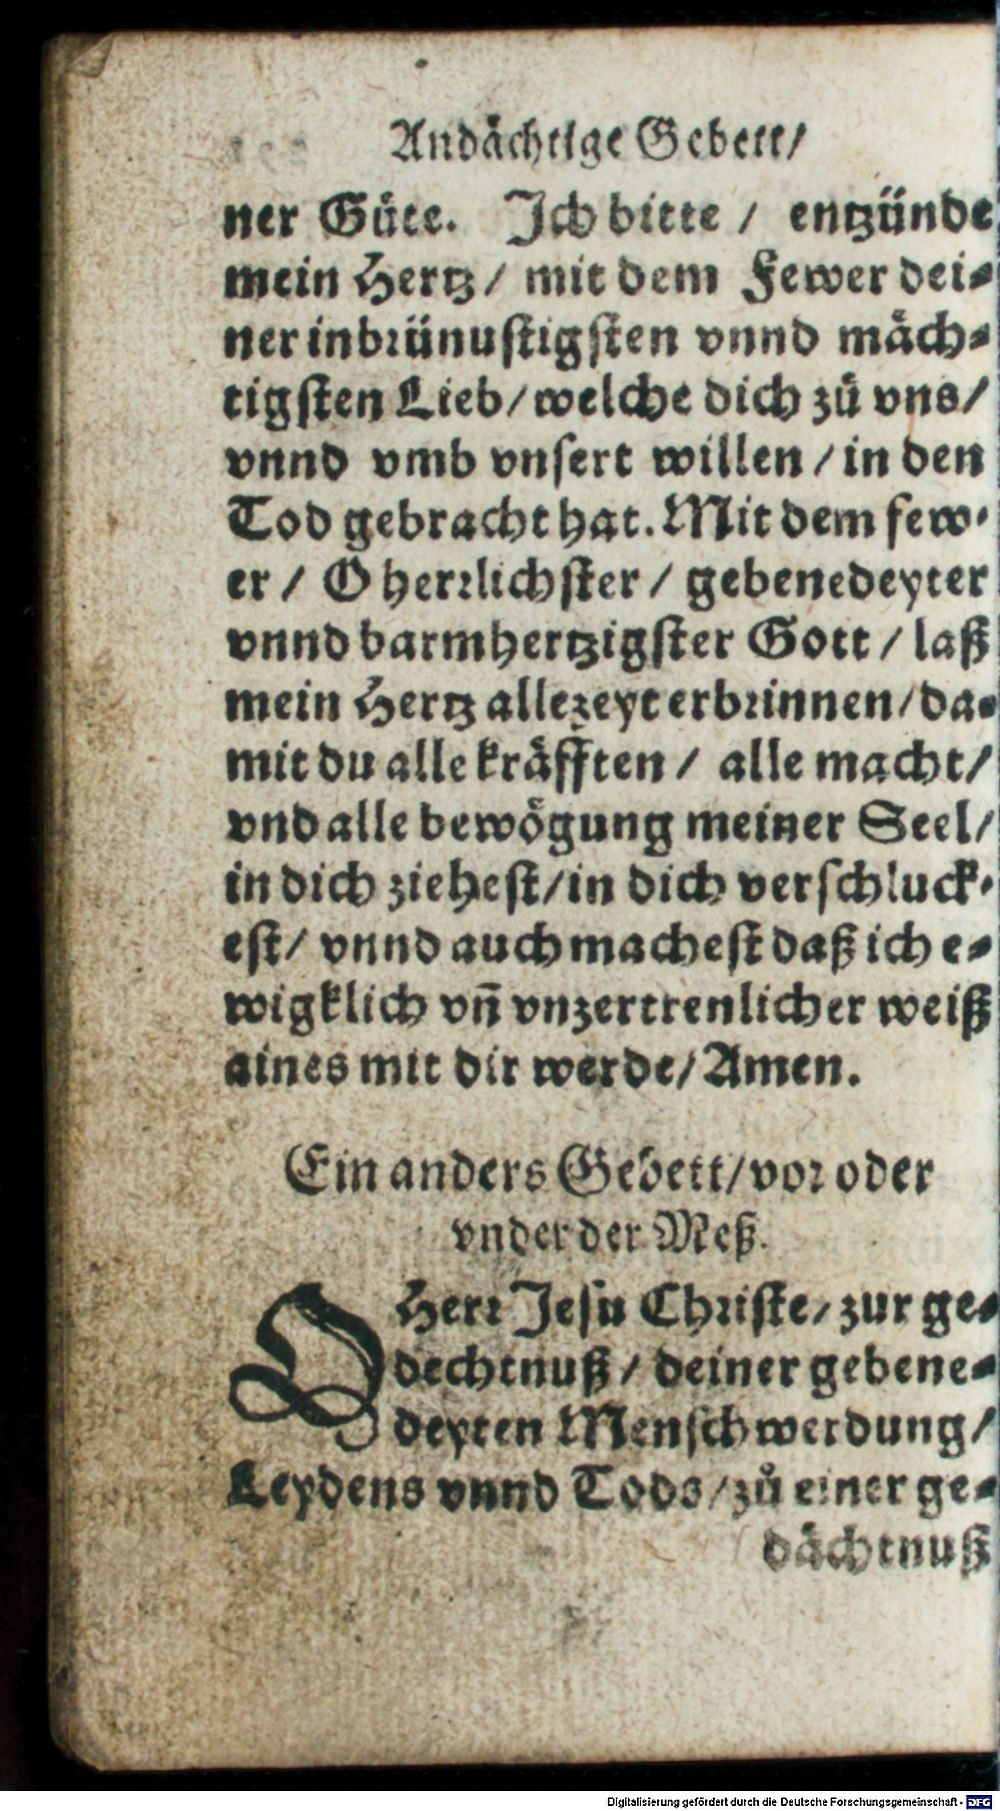 Andächtige Gebett/
ner Gůte. Ich bitte / entzünde
mein Hertz / mit dem Fewer dei⸗
ner inbrünustigsten vnnd mäch⸗
tigsten Lieb / welche dich zů vns /
vnnd vmb vnsert willen / in den
Tod gebracht hat. Mit dem few⸗
er / O herrlichster / gebenedeyter
vnnd barmhertzigster Gott / laß
mein Hertz allezeyt erbrinnen / da⸗
mit du alle kräfften / alle macht /
vnd alle bewögung meiner Seel /
in dich ziehest / in dich verschluck⸗
est / vnnd auch machest daß ich e⸗
wigklich vn̄ vnzertrenlicher weiß
aines mit dir werde / Amen.
Ein anders Gebett / vor oder
vnder der Meß.
O Herr Jesu Christe / zur ge⸗
dechtnuß / deiner gebene⸗
deyten Menschwerdung /
Leydens vnnd Tods / zů einer ge⸗
dächtnuß
Digitalisierung gefördert durch die Deutsche Forschungsgemeinschaft - DFG